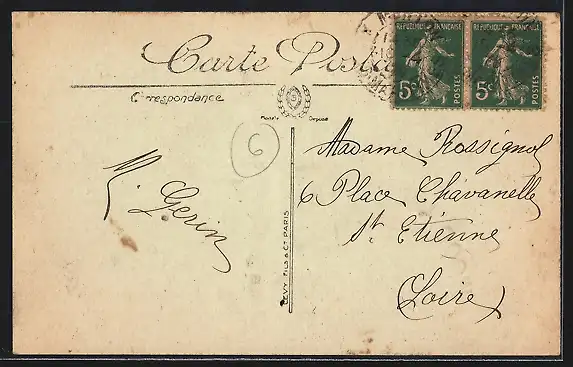 Carte Postale
RÉPUBLIQUE FRANÇAISE
5c POSTES
RÉPUBLIQUE FRANÇAISE
5c POSTES
Correspondance
Modèle Déposé
6
Madame Rossignol
6 Place Chavanelle
St Etienne
Loire
M. Gerin
LEVY FILS & Cie PARIS